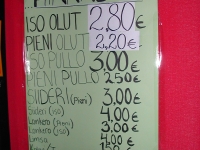 ISO OLUT 2,80€
PIENI OLUT 2,20€
ISO PULLO 3,00€
PIENI PULLO 2,50€
SIIDERI (Pieni) 3,00€
Siideri (iso) 4,00€
Lonkero (Pieni) 3,00€
Lonkero (iso) 4,00€
4,00€